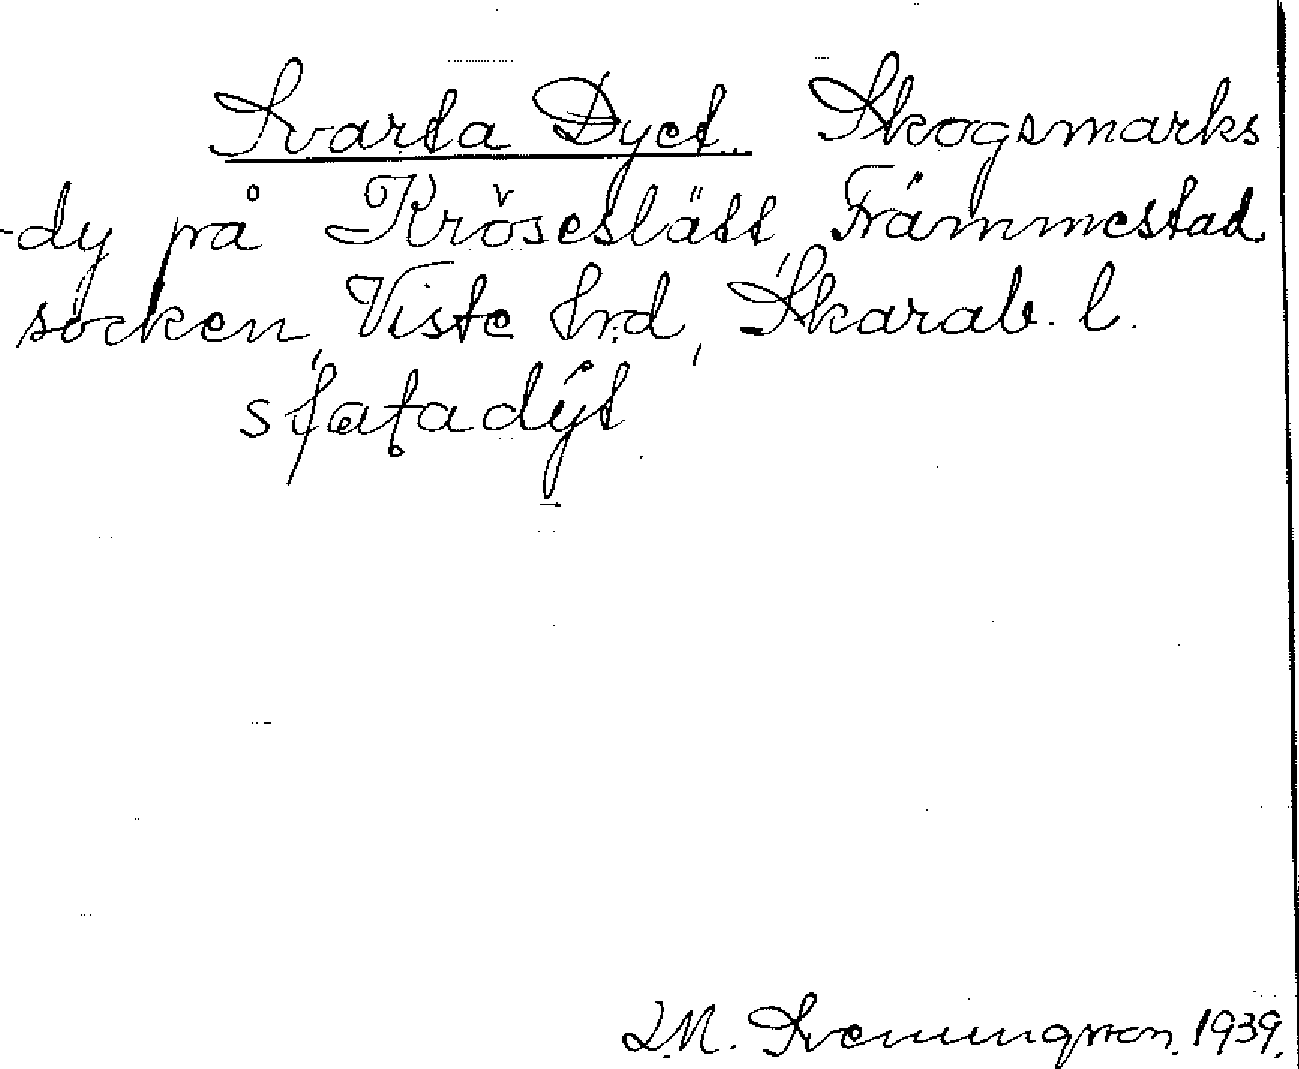 Svarta Dyet. Skogsmarks
-dy på Kröseslätt, Främmestad
socken, Viste hrd, Skarab. l.
L.M. Svenungsson. 1939.